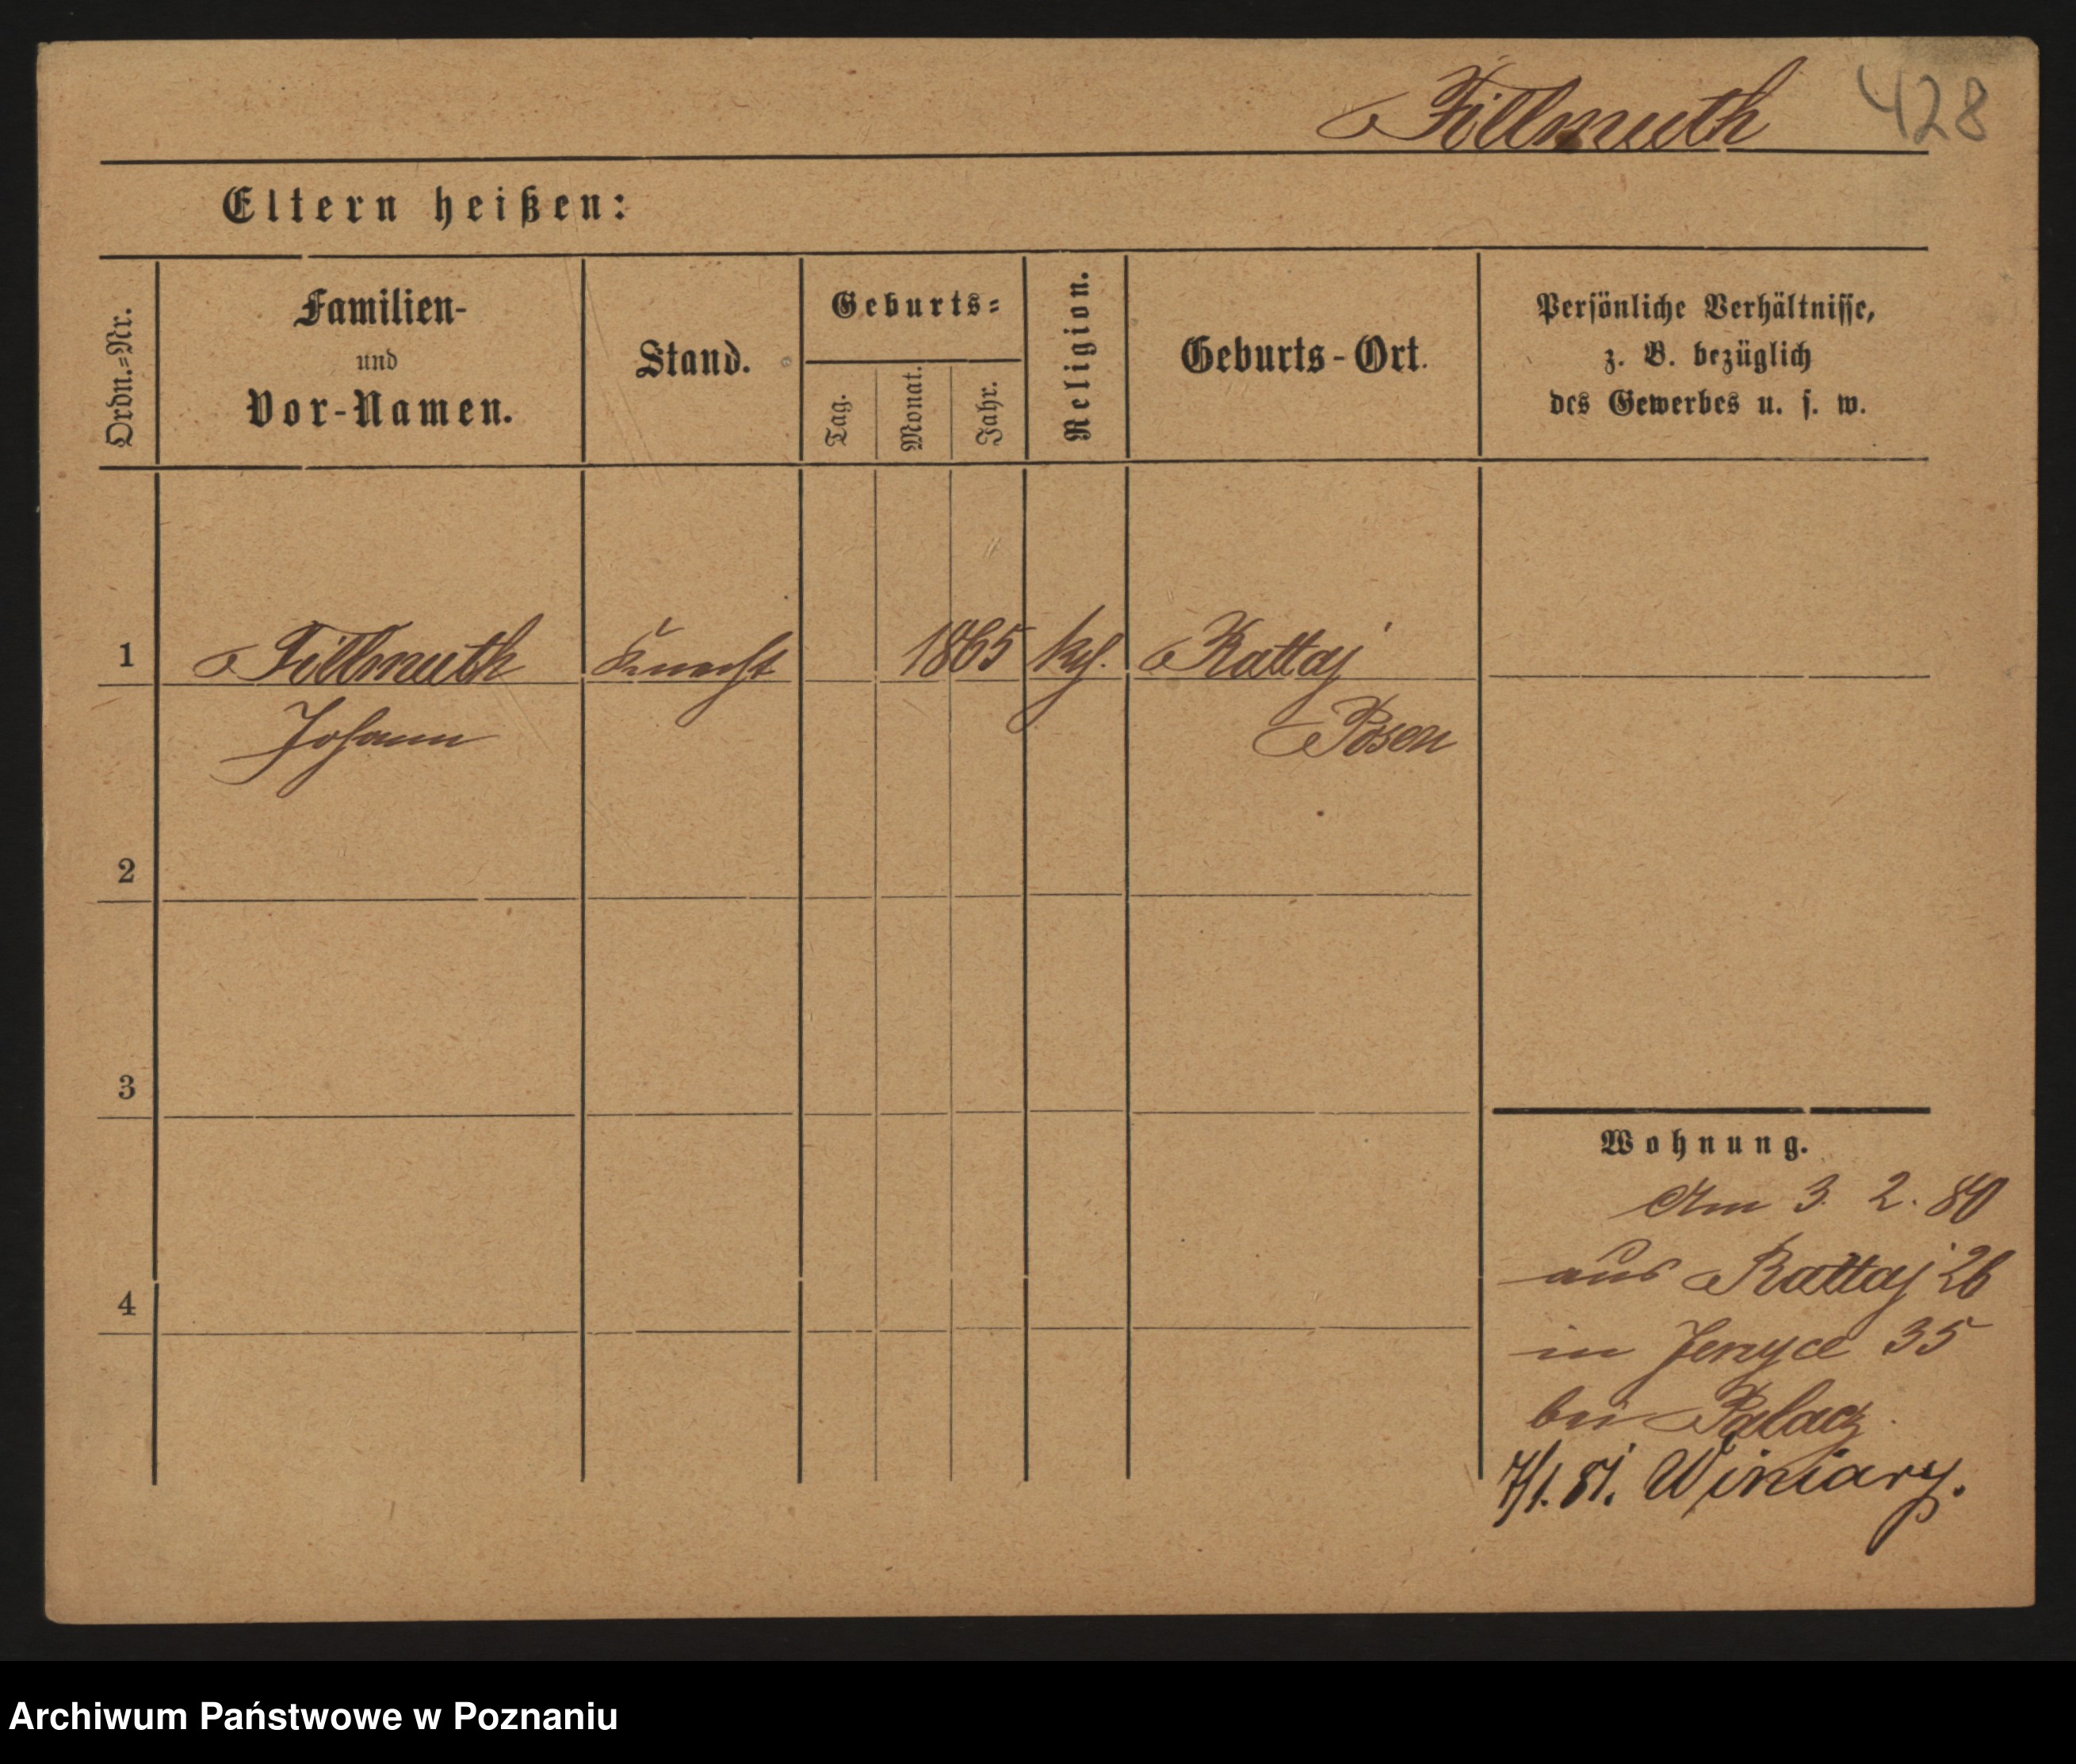 Fillmuth 428
Eltern heißen:
Ordn.=Nr.
Familien-
und
Vor-Namen.
Stand.
Geburts=
Tag.
Monat.
Jahr.
Religion.
Geburts-Ort.
Persönliche Verhältnisse,
z. B. bezüglich
des Gewerbes u. s. w.
1 Fillmuth Knecht 1865 kgl. Rattaj
Johann Posen
2
3
4
Wohnung.
Am 3. 2. 80
aus Rattaj 26
in Jerzyce 35
bei Palacz
7/1. 81. Winiary.
Archiwum Państwowe w Poznaniu